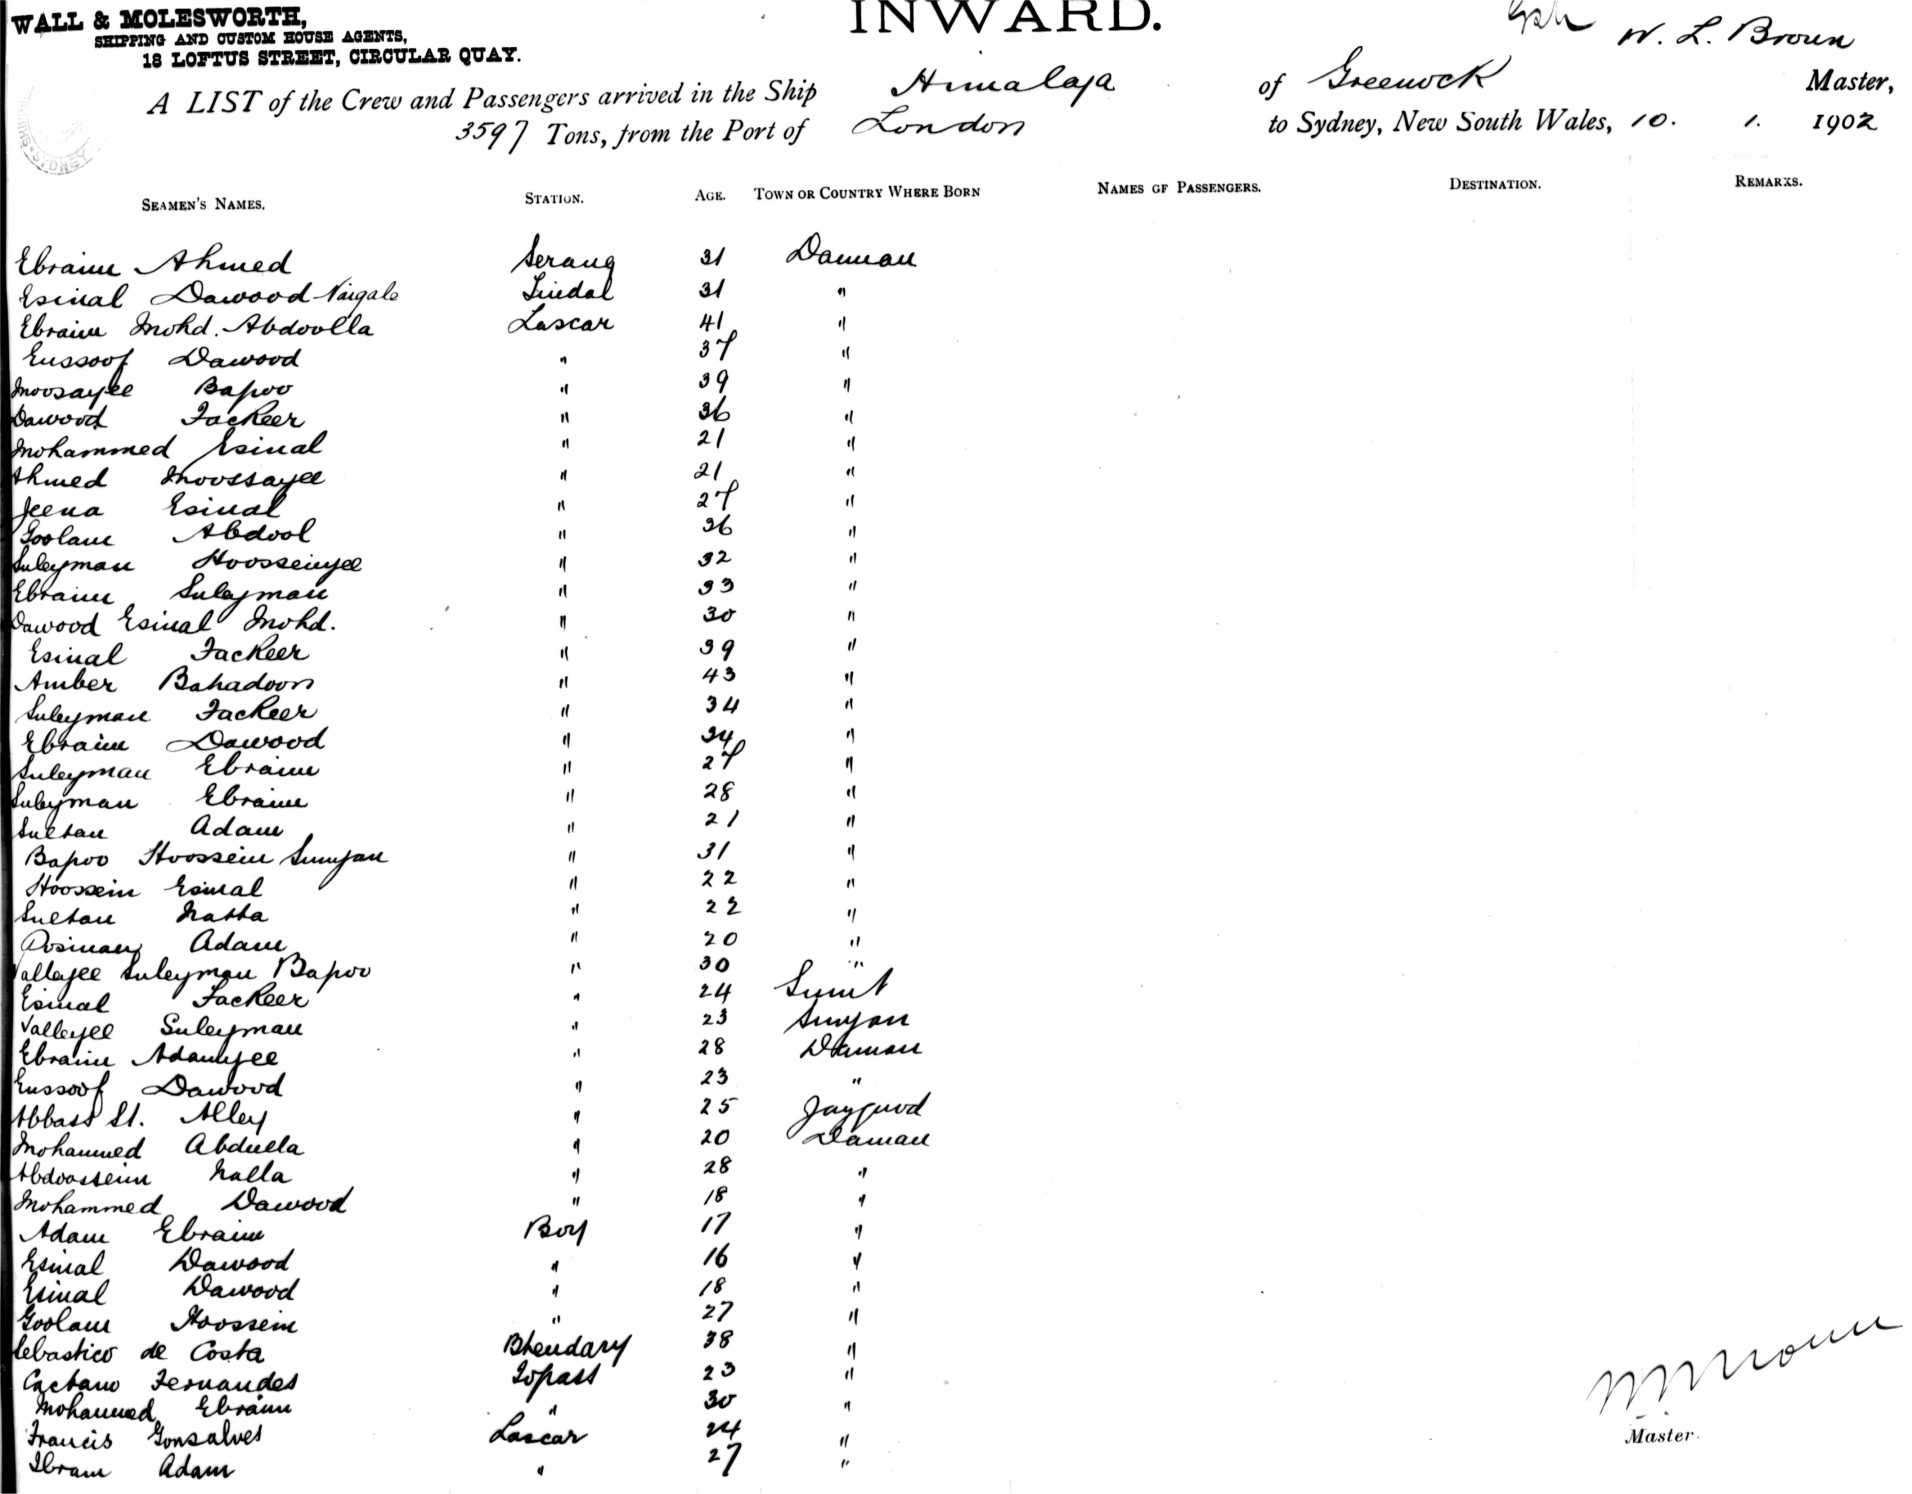 WALL & MOLESWORTH,
SHIPPING AND CUSTOM HOUSE AGENTS,
18 LOFTUS STREET, CIRCULAR QUAY.
INWARD.
W. L. Broun
A LIST of the Crew and Passengers arrived in the Ship Himalaya of Greenock Master,
3597 Tons, from the Port of London to Sydney, New South Wales, 10. 1. 1902
SEAMEN'S NAMES. STATION. AGE. TOWN OR COUNTRY WHERE BORN NAMES OF PASSENGERS. DESTINATION. REMARKS.
Ebraim Ahmed Serang 31 Daman
Esmal Dawood Naigale Tindal 31 "
Ebraim Mohd. Abdoolla Lascar 41 "
Eussoof Dawood " 37 "
Moosajee Bapoo " 39 "
Dawood Fackeer " 36 "
Mohammed Esmal " 21 "
Ahmed Moossajee " 21 "
Jeena Esmal " 27 "
Goolam Abdool " 36 "
Suleyman Hoosseinjee " 32 "
Ebraim Suleyman " 33 "
Dawood Esmal Mohd. " 30 "
Esmal Fackeer " 39 "
Amber Bahadoor " 43 "
Suleyman Fackeer " 34 "
Ebraim Dawood " 34 "
Suleyman Ebraim " 27 "
Suleyman Ebraim " 28 "
Sultan Adam " 21 "
Bapoo Hoossein Sunjan " 31 "
Hoossein Esmal " 22 "
Sultan Natha " 22 "
Oosman Adam " 20 "
Vallejee Suleyman Bapoo " 30 "
Esmal Fackeer " 24 Surat
Vallejee Suleyman " 23 Sunjan
Ebraim Adamjee " 28 Daman
Eussoof Dawood " 23 "
Abbass St. Alley " 25 Jaygurd
Mohammed Abdulla " 20 Daman
Abdoosseim Nalla " 28 "
Mohammed Dawood " 18 "
Adam Ebraim Boy 17 "
Esmal Dawood " 16 "
Esmal Dawood " 18 "
Goolam Hoossein " 27 "
Sebastico de Costa Bhendary 38 "
Caetano Fernandes Topass 23 "
Mohammed Ebraim " 30 "
Francis Gonsalves Lascar 24 "
Ibram Adam " 27 "
Master.